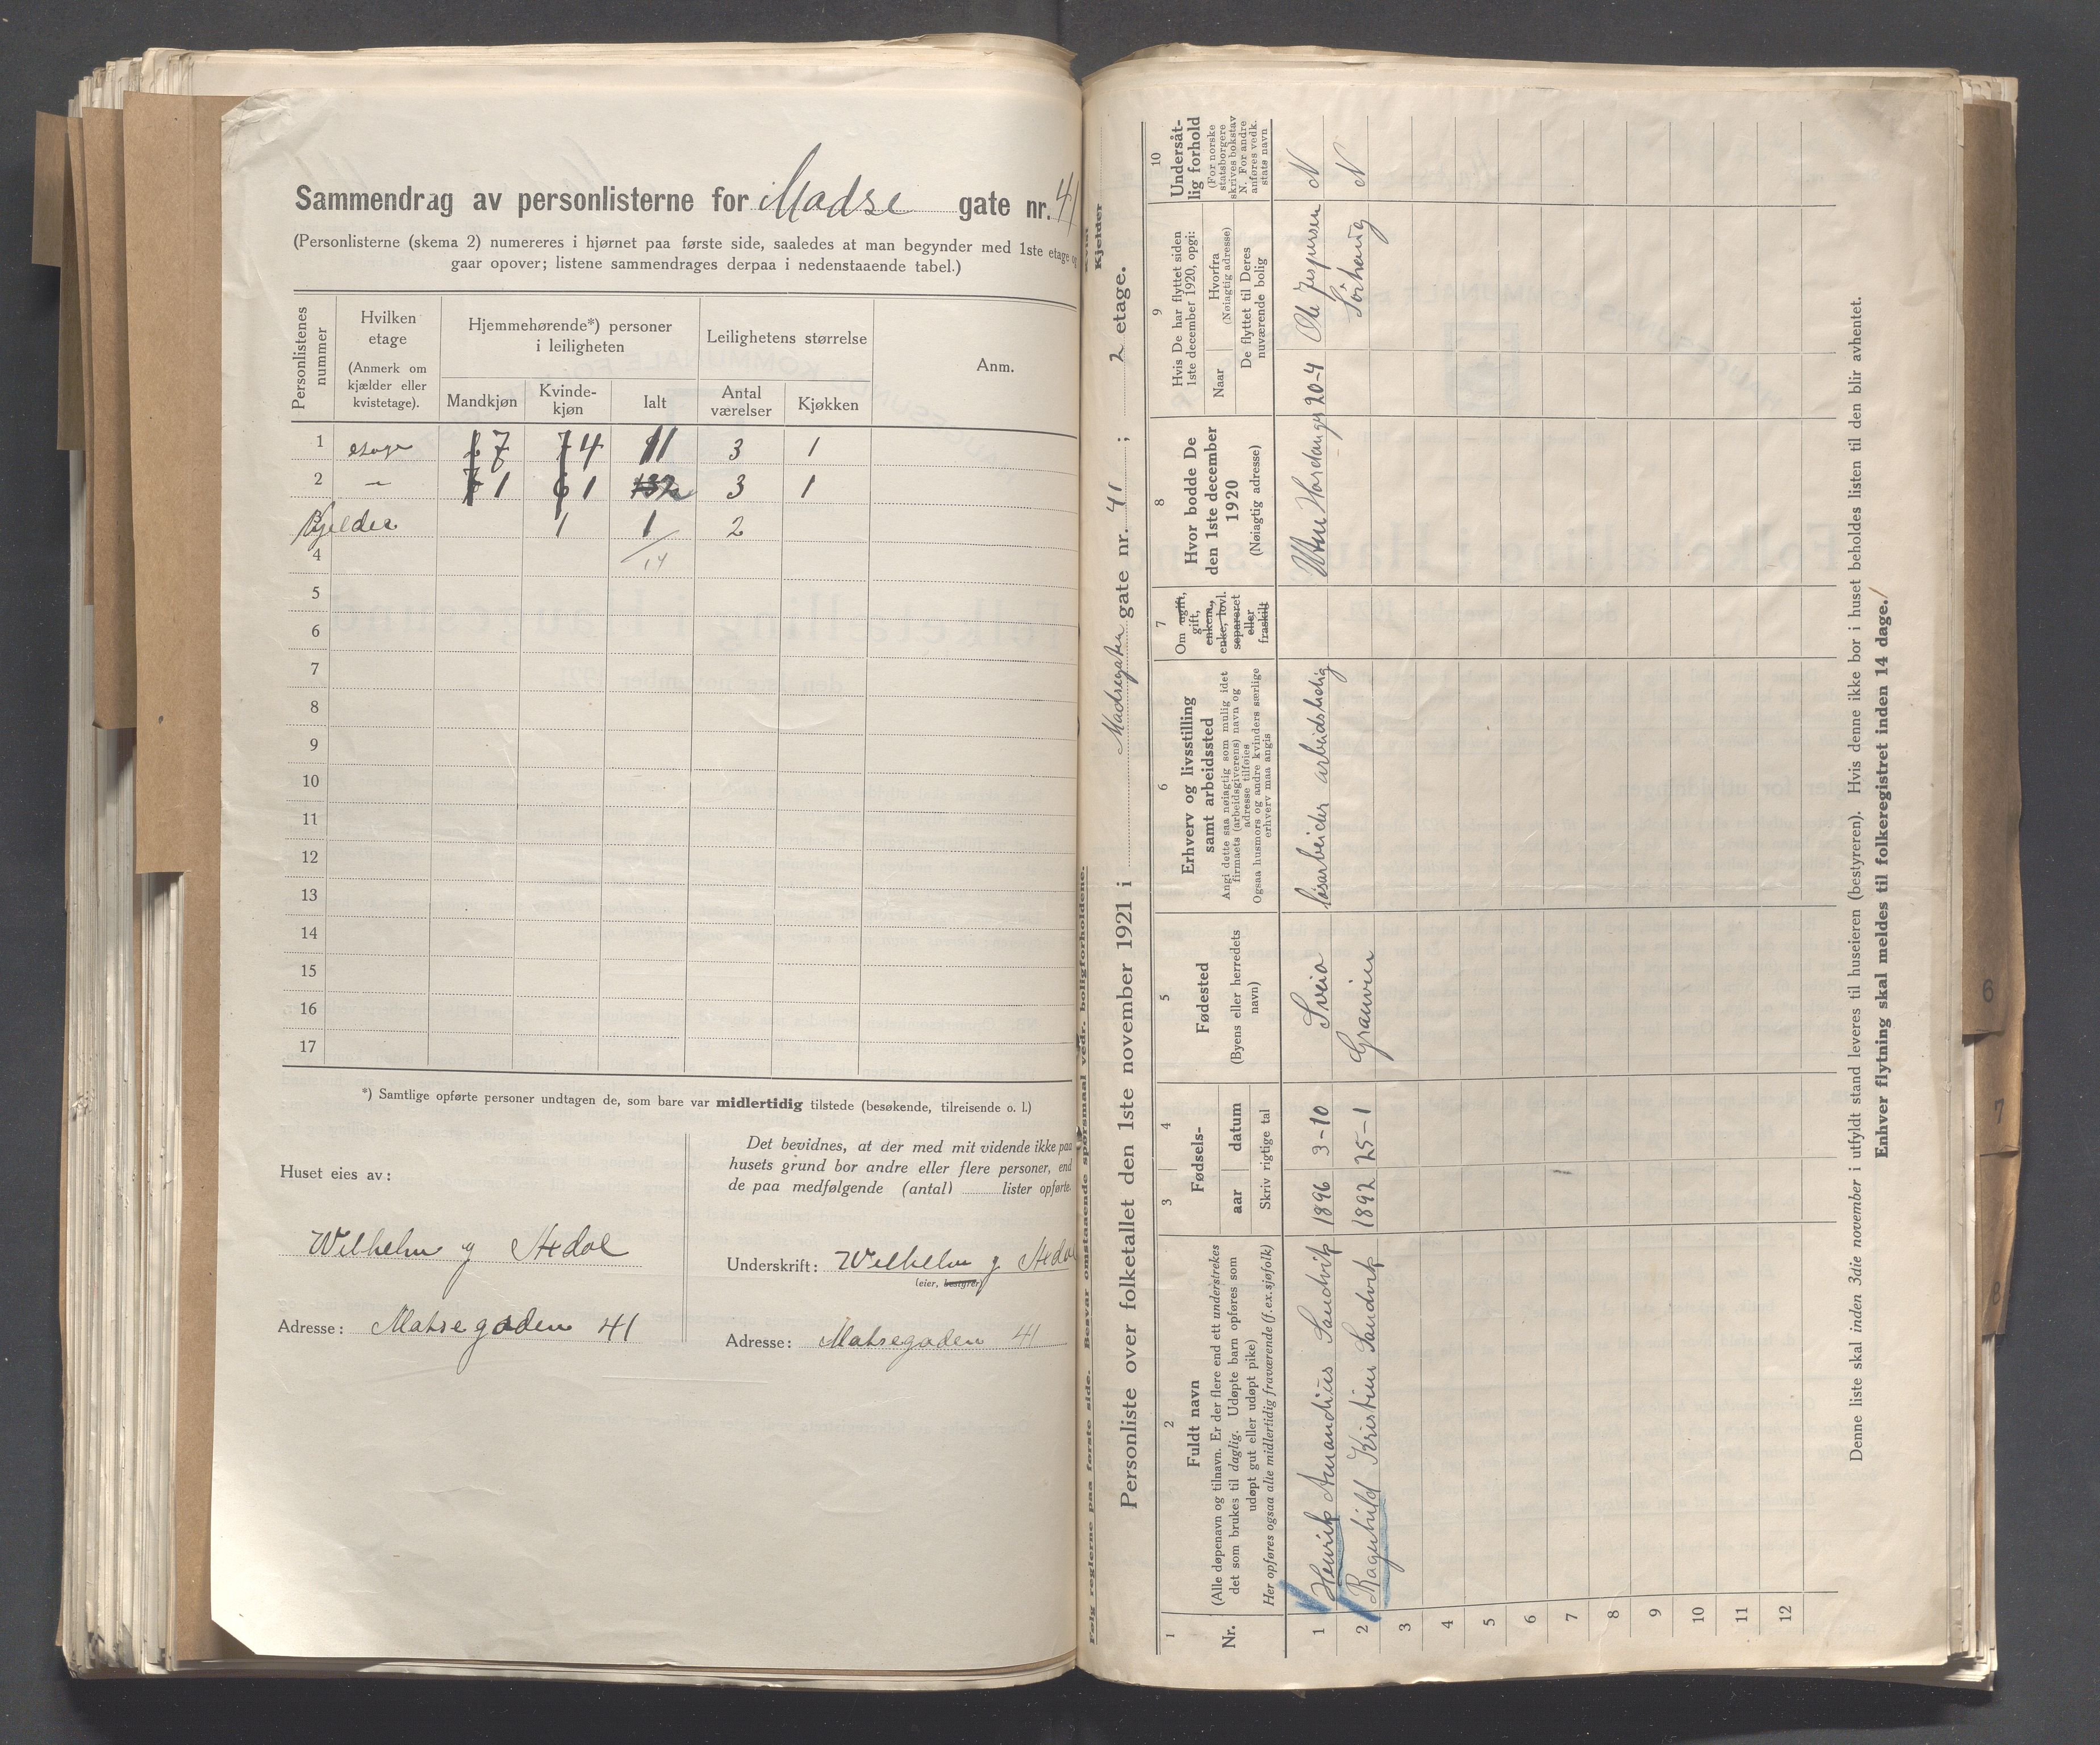 Sammendrag av personlisterne for Madse gate nr. 41
(Personlisterne (skema 2) numereres i hjørnet paa første side, saaledes at man begynder med 1ste etage og
gaar opover; listene sammendrages derpaa i nedenstaaende tabel.)
Personlistenes nummer
Hvilken etage
(Anmerk om kjælder eller kvistetage).
Hjemmehørende*) personer i leiligheten
Mandkjøn
Kvinde-kjøn
Ialt
Leilighetens størrelse
Antal værelser
Kjøkken
Anm.
1 etage 7 4 11 3 1
2 — 1 1 2 3 1
Kjelder 1 1 2
4 14
5
6
7
8
9
10
11
12
13
14
15
16
17
*) Samtlige opførte personer undtagen de, som bare var midlertidig tilstede (besøkende, tilreisende o. l.)
Huset eies av:
Wilhelm g Stedal
Adresse: Matsegaden 41
Det bevidnes, at der med mit vidende ikke paa
husets grund bor andre eller flere personer, end
de paa medfølgende (antal) lister opførte.
Underskrift: Wilhelm g
(eier, bestyrer)
Adresse: Matsegaden 41
Følg reglerne paa første side. Besvar omstaaende spørsmaal vedr. boligforholdene.
Kvist
Kjelder
Personliste over folketallet den 1ste november 1921 i Madsegaten gate nr. 41; 2 etage.
1
Nr.
2
Fuldt navn
(Alle døpenavn og tilnavn. Er der flere end ett understrekes
det som brukes til daglig. Udøpte barn opføres som
udøpt gut eller udøpt pike)
Her opføres ogsaa alle midlertidig fraværende (f.ex. sjøfolk)
3 4
Fødsels-
aar datum
Skriv rigtige tal
5
Fødested
(Byens eller herredets navn)
6
Erhverv og livsstilling
samt arbeidssted
Angi dette saa nøiagtig som mulig idet
firmaets (arbeidsgiverens) navn og
adresse tilføies
Ogsaa husmors og andre kvinders særlige
erhverv maa angis
7
Om ugift,
gift,
enkem.,
enke, lovl.
separeret
eller
fraskilt
8
Hvor bodde De
den 1ste december
1920
(Nøiagtig adresse)
9
Hvis De har flyttet siden
1ste december 1920, opgi:
Naar
Hvorfra
(Nøiagtig adresse)
De flyttet til Deres
nuværende bolig
10
Undersåt-
lig forhold
(For norske
statsborgere
skrives bokstav
N. For andre
anføres vedk.
stats navn
1 Henrik Amandius Sandvik 1896 3-10 Sveio løsarbeider arbeidsledig Hardanger 20-4 Ole Jespersen N
2 Ragnhild Kristine Sandvik 1892 25-1 Granvin Sørhaug N
3
4
5
6
7
8
9
10
11
12
Denne liste skal inden 3die november i utfyldt stand leveres til huseieren (bestyreren). Hvis denne ikke bor i huset beholdes listen til den blir avhentet.
Enhver flytning skal meldes til folkeregistret inden 14 dage.
6
7
8